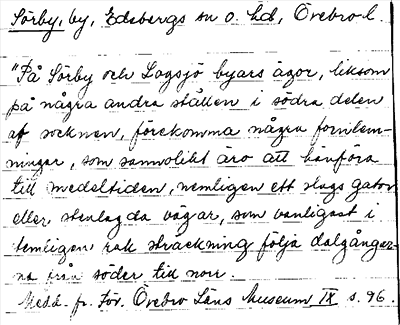 Sörby, by, Edsbergs sn o. hd, Örebro l.
"På Sörby och Logsjö byars ägor, liksom
på några andra ställen i södra delen
af socknen, förekomma några fornlem-
ningar, som sannolikt äro att hänföra
till medeltiden, nemligen ett slags gator
eller stenlagda vägar, som vanligast i
temligen rak sträckning följa dalgångar-
na från söder till norr.
Medd. fr. För. Örebro Läns Museum IX s. 96.